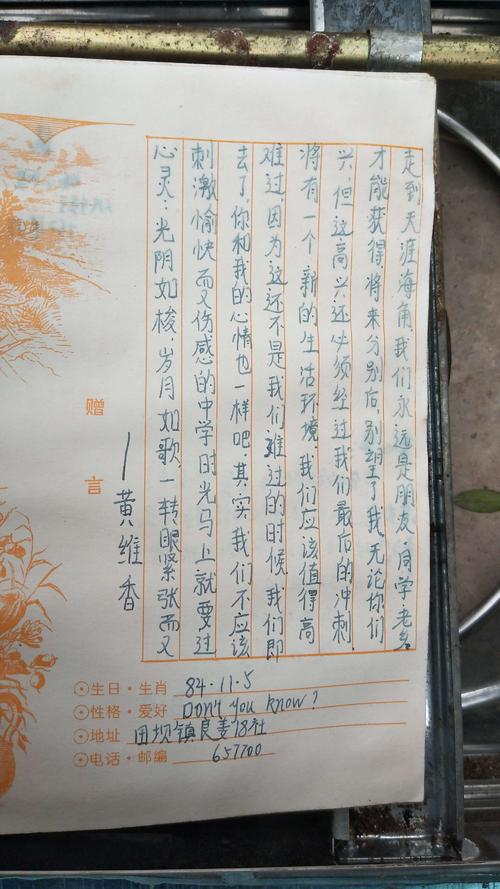 赠言
心灵：光阴如梭，岁月如歌，一转眼紧张而又
刺激愉快而又伤感的中学时光马上就要过
去了，你和我的心情也一样吧.其实我们不应该
难过，因为这还不是我们难过的时候，我们即
将有一个新的生活环境.我们应该值得高
兴，但这高兴还必须经过我们最后的冲刺
才能获得.将来分别后，别望了我，无论你们
走到天涯海角，我们永远是朋友.同学老乡
—黄维香
生日·生肖 84·11·5
性格·爱好 Don't you know?
地址 田坝镇良姜18社
电话·邮编 657700